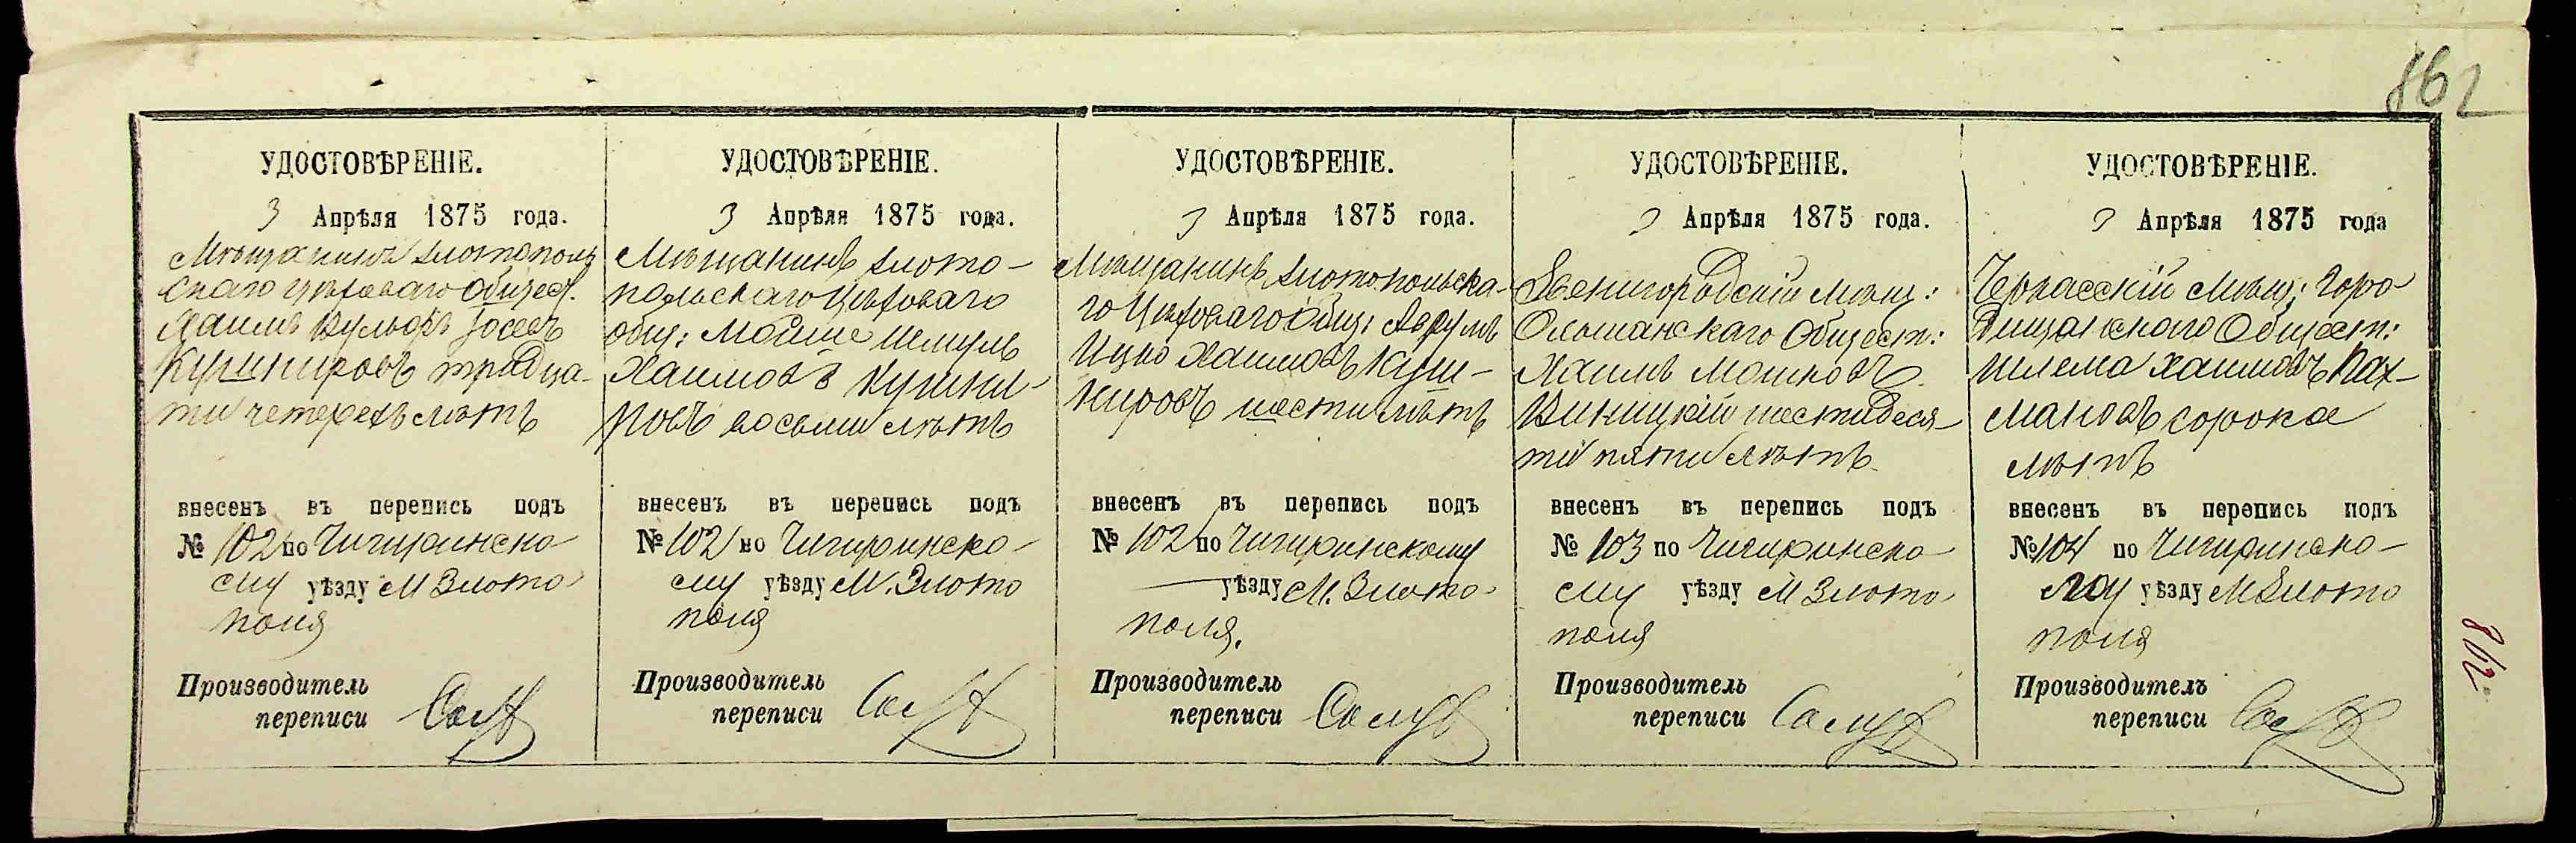 862
УДОСТОВѢРЕНІЕ.
3 Апрѣля 1875 года.
Мѣщанинъ Златополь
скаго цѣховаго общес.
Хаимъ Вульфъ Іосевъ
Кушнировъ тридца-
ти четерехъ лѣтъ
внесенъ въ перепись подъ
№ 102 по Чигиринско
му уѣзду М Злото
поля
Производитель
переписи
УДОСТОВѢРЕНІЕ.
3 Апрѣля 1875 года.
Мѣщанинъ Злото-
польскаго Цѣховаго
общ: Мойше Шмуль
Хаимовъ Кушни-
ровъ восьми лѣтъ
внесенъ въ перепись подъ
№ 102 по Чигиринско-
му уѣзду М. Злото
поля
Производитель
переписи
УДОСТОВѢРЕНІЕ.
3 Апрѣля 1875 года.
Мѣщанинъ Злотопольска-
го Цѣховаго Общ: Аврумъ
Ицко Хаимовъ Куш-
нировъ шести лѣтъ
внесенъ въ перепись подъ
№ 102 по Чигиринскому
уѣзду М. Злото-
поля.
Производитель
переписи
УДОСТОВѢРЕНІЕ.
3 Апрѣля 1875 года.
Звенигородскій Мѣщ:
Ольшанскаго Общест:
Хаимъ Мошковъ
Виницкій шестидеся-
ти пяти лѣтъ
внесенъ въ перепись подъ
№ 103 по Чигиринско
му уѣзду М Злото
поля
Производитель
переписи
УДОСТОВѢРЕНІЕ.
3 Апрѣля 1875 года
Черкасскій Мѣщ: Горо
дищанскаго Общест:
Шлема Хаимовъ Рах-
мановъ сорока
лѣтъ
внесенъ въ перепись подъ
№ 104 по Чигиринско-
му уѣзду М Злото
поля
Производитель
переписи
862